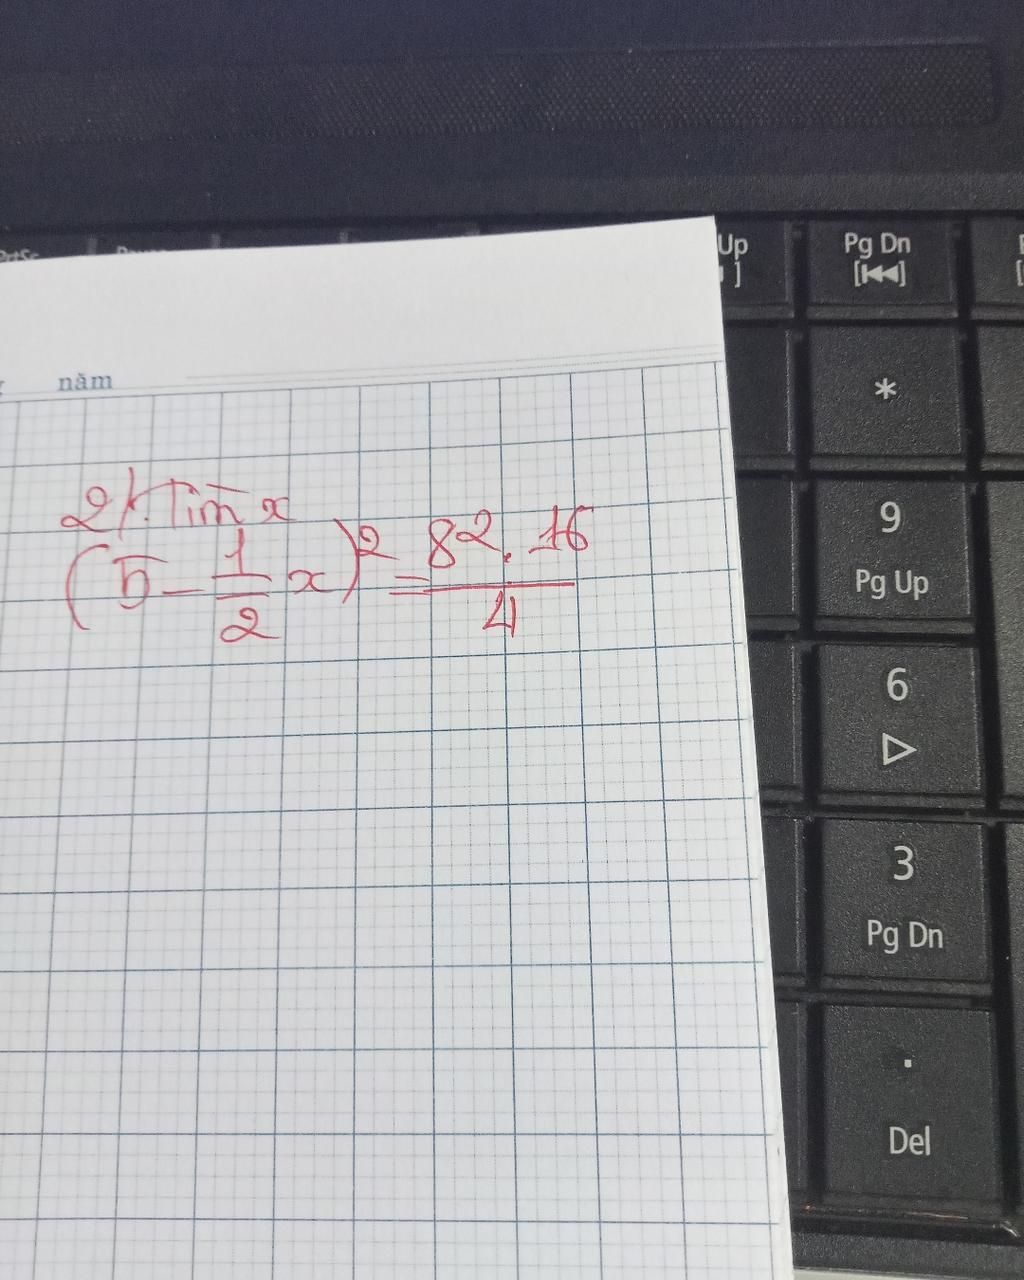 năm
2/. Tìm x
(5 - 1/2 x)² = 8². 16 / 4
Up
]
Pg Dn
[⏮]
*
9
Pg Up
6
▷
3
Pg Dn
.
Del